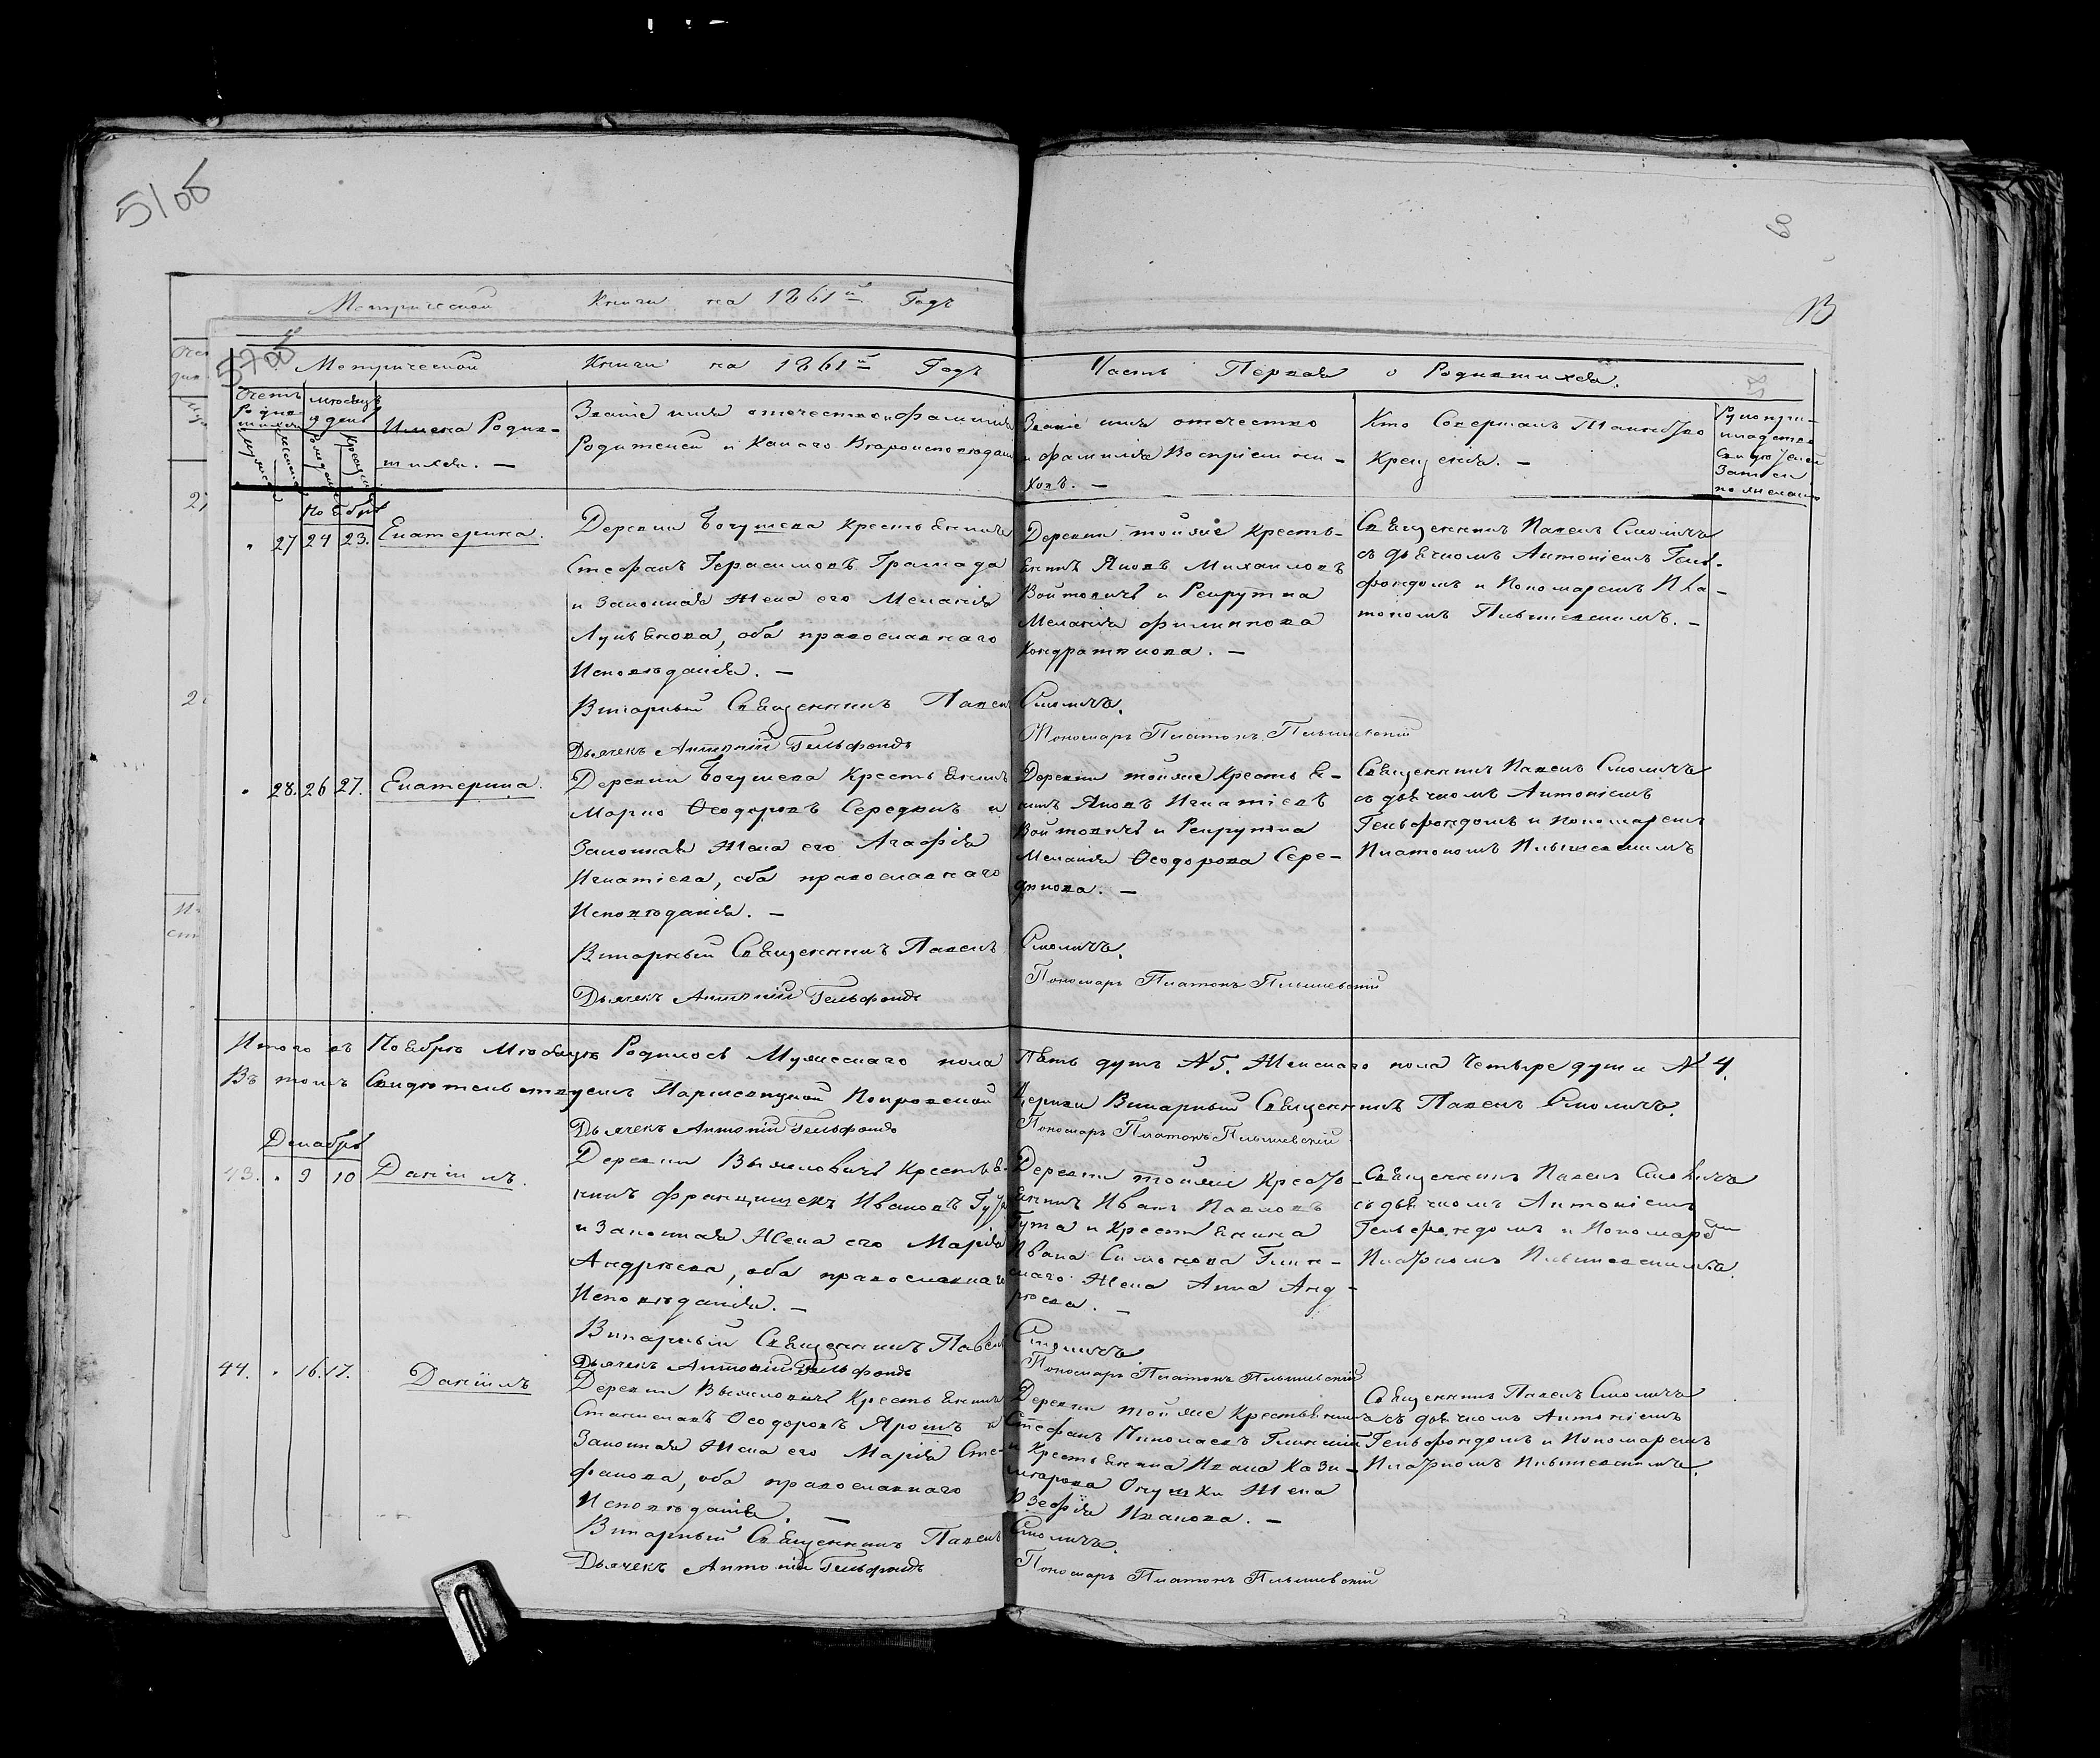 51об
Метрической Книги на 1861й Годъ
13
57об
Метрической Книги на 1861й Годъ
Часть Первая о Родившихся.
Счетъ Родившихся
Мѣсяцъ и день
Имена Родив-
шихся. —
Званіе имя отечество и фамилія
Родителей и Какаго Вѣроисповѣданія
Званіе имя отечество
и фамилія Воспріемни-
ковъ. —
Кто Совершалъ Таинство
Крещенія. —
Рукопри-
кладство
Свидѣтелей
Записи
по желанію
Ноябрь
" 27 24 23. Екатерина.
Деревни Богушева Крестьянинъ
Стефанъ Герасимовъ Грамада
и Законная Жена его Меланія
Лукьянова, оба православнаго
Исповѣданія. —
Викарный Священникъ Павелъ
Дьячекъ Антоній Гельфондъ
Деревни тойже Кресть-
янинъ Яковъ Михаиловъ
Войтовичъ и Рекрутка
Меланія Филиппова
Кондратюкова. —
Смоличъ.
Пономарь Платонъ Пльшевскій
Священникъ Павелъ Смоличъ
съ дьячкомъ Антоніемъ Гель-
фондомъ и Пономаремъ Пла-
тономъ Пльшевскимъ. —
" 28. 26 27. Екатерина.
Деревни Богушева Крестьянинъ
Марко Ѳеодоровъ Середюкъ и
Законная Жена его Агафія
Игнатіева, оба православнаго
Исповѣданія. —
Викарный Священникъ Павелъ
Дьячекъ Антоній Гельфондъ
Деревни тойже Крестья-
нинъ Яковъ Игнатіевъ
Войтовичъ и Рекрутка
Меланія Ѳеодорова Сере-
дюкова. —
Смоличъ.
Пономарь Платонъ Пльшевскій
Священникъ Павелъ Смоличъ
съ дьячкомъ Антоніемъ
Гельфондомъ и Пономаремъ
Платономъ Пльшевскимъ
Итого въ Ноябрѣ Мѣсяцѣ Родилось Мужескаго пола Пять душъ №5. Женскаго пола Четыре души № 4.
Въ томъ Свидѣтельствуемъ Церкви Викарный Священникъ Павелъ Смоличъ.
Дьячекъ Антоній Гельфондъ Пономарь Платонъ Пльшевскій
Декабрь
43. " 9 10 Даніилъ.
Деревни Выжловичъ Крестья-
нинъ Францишекъ Ивановъ
и Законная Жена его Марія
Андреева, оба православнаго
Исповѣданія. —
Викарный Священникъ Павелъ
Дьячекъ Антоній Гельфондъ
Деревни тойже Кресть-
янинъ Иванъ Павловъ
и Крестьянина
Ивана Симонова Глин-
скаго Жена Анна Анд-
реева. —
Смоличъ.
Пономарь Платонъ Пльшевскій
Священникъ Павелъ Смоличъ
съ дьячкомъ Антоніемъ
Гельфондомъ и Пономаремъ
Платономъ Пльшевскимъ.
44. " 16. 17. Даніилъ
Деревни Выжловичъ Крестьянинъ
Станиславъ Ѳеодоровъ Ярошъ и
Законная Жена его Марія Сте-
фанова, оба православнаго
Исповѣданія. —
Викарный Священникъ Павелъ
Дьячекъ Антоній Гельфондъ
Деревни тойже Крестьянинъ
Стефанъ Николаевъ Глинскій
и Крестьянина Ивана Кази-
мірова Жена
Юзефія Иванова. —
Смоличъ.
Пономарь Платонъ Пльшевскій
Священникъ Павелъ Смоличъ
съ дьячкомъ Антоніемъ
Гельфондомъ и Пономаремъ
Платономъ Пльшевскимъ.